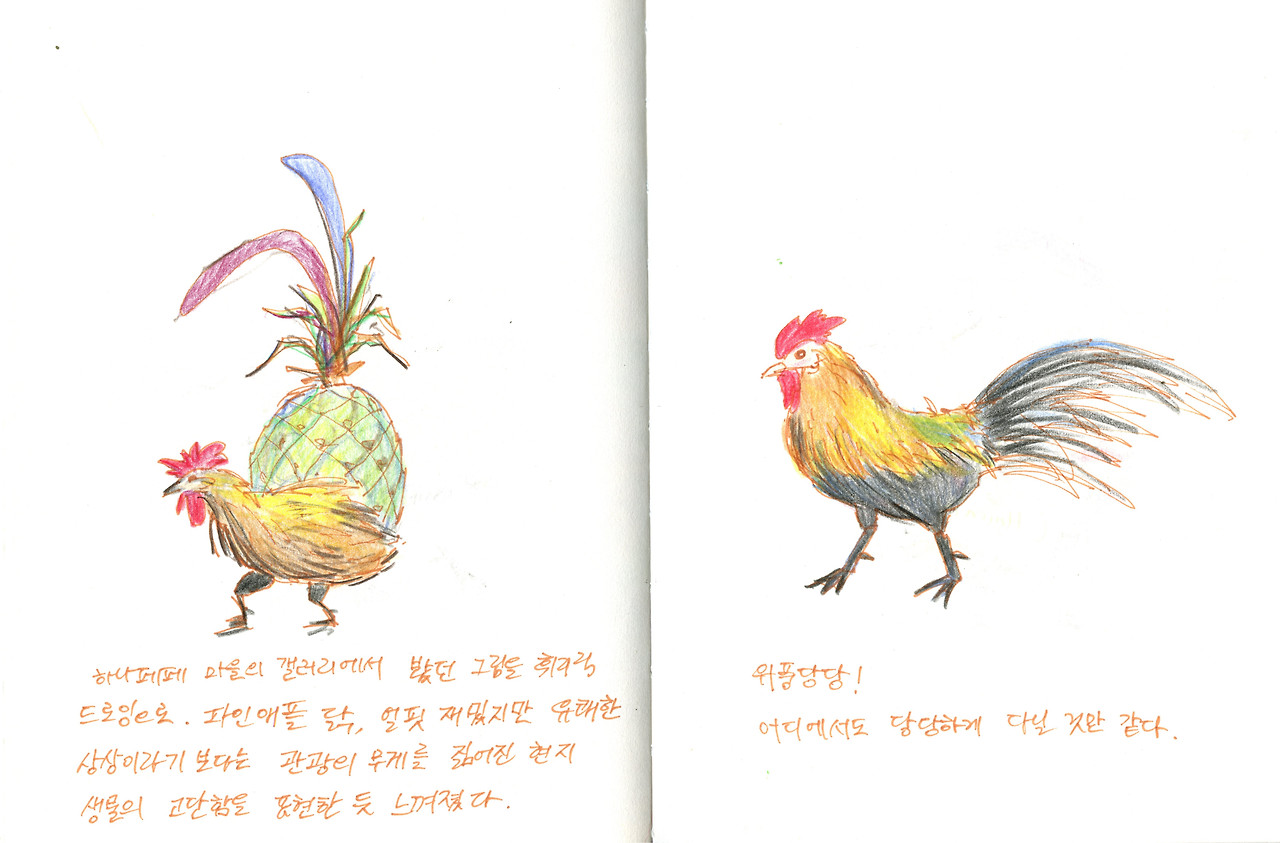 하나페페 마을의 갤러리에서 봤던 그림을 휘리릭
드로잉으로. 파인애플 닭, 얼핏 재밌지만 유쾌한
상상이라기 보다는 관광의 무게를 짊어진 현지
생물의 고단함을 표현한 듯 느껴졌다.
위풍당당!
어디에서도 당당하게 다닐 것만 같다.